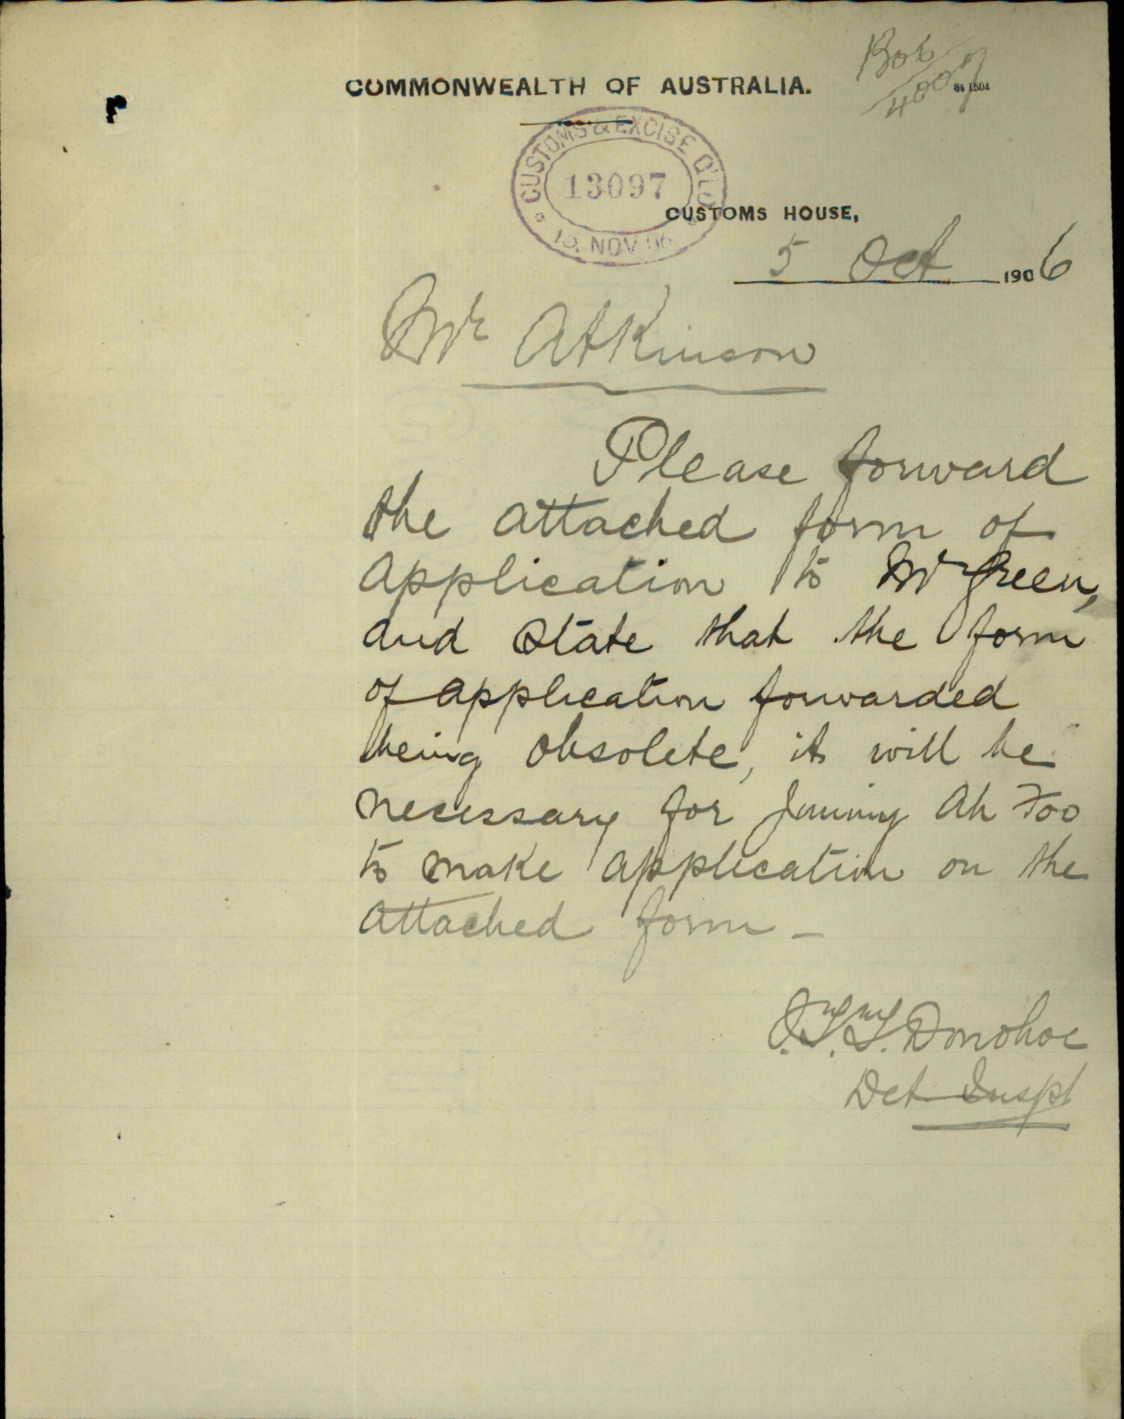 COMMONWEALTH OF AUSTRALIA.
CUSTOMS & EXCISE Q'LD
13097
NOV 06
CUSTOMS HOUSE,
5 Oct 1906
Mr Atkinson
Please forward
the attached form of
application to Mr Green,
and state that the form
of application forwarded
being obsolete, it will be
necessary for Jimmy Ah Foo
to make application on the
attached form -
Donohoe
Det Inspr